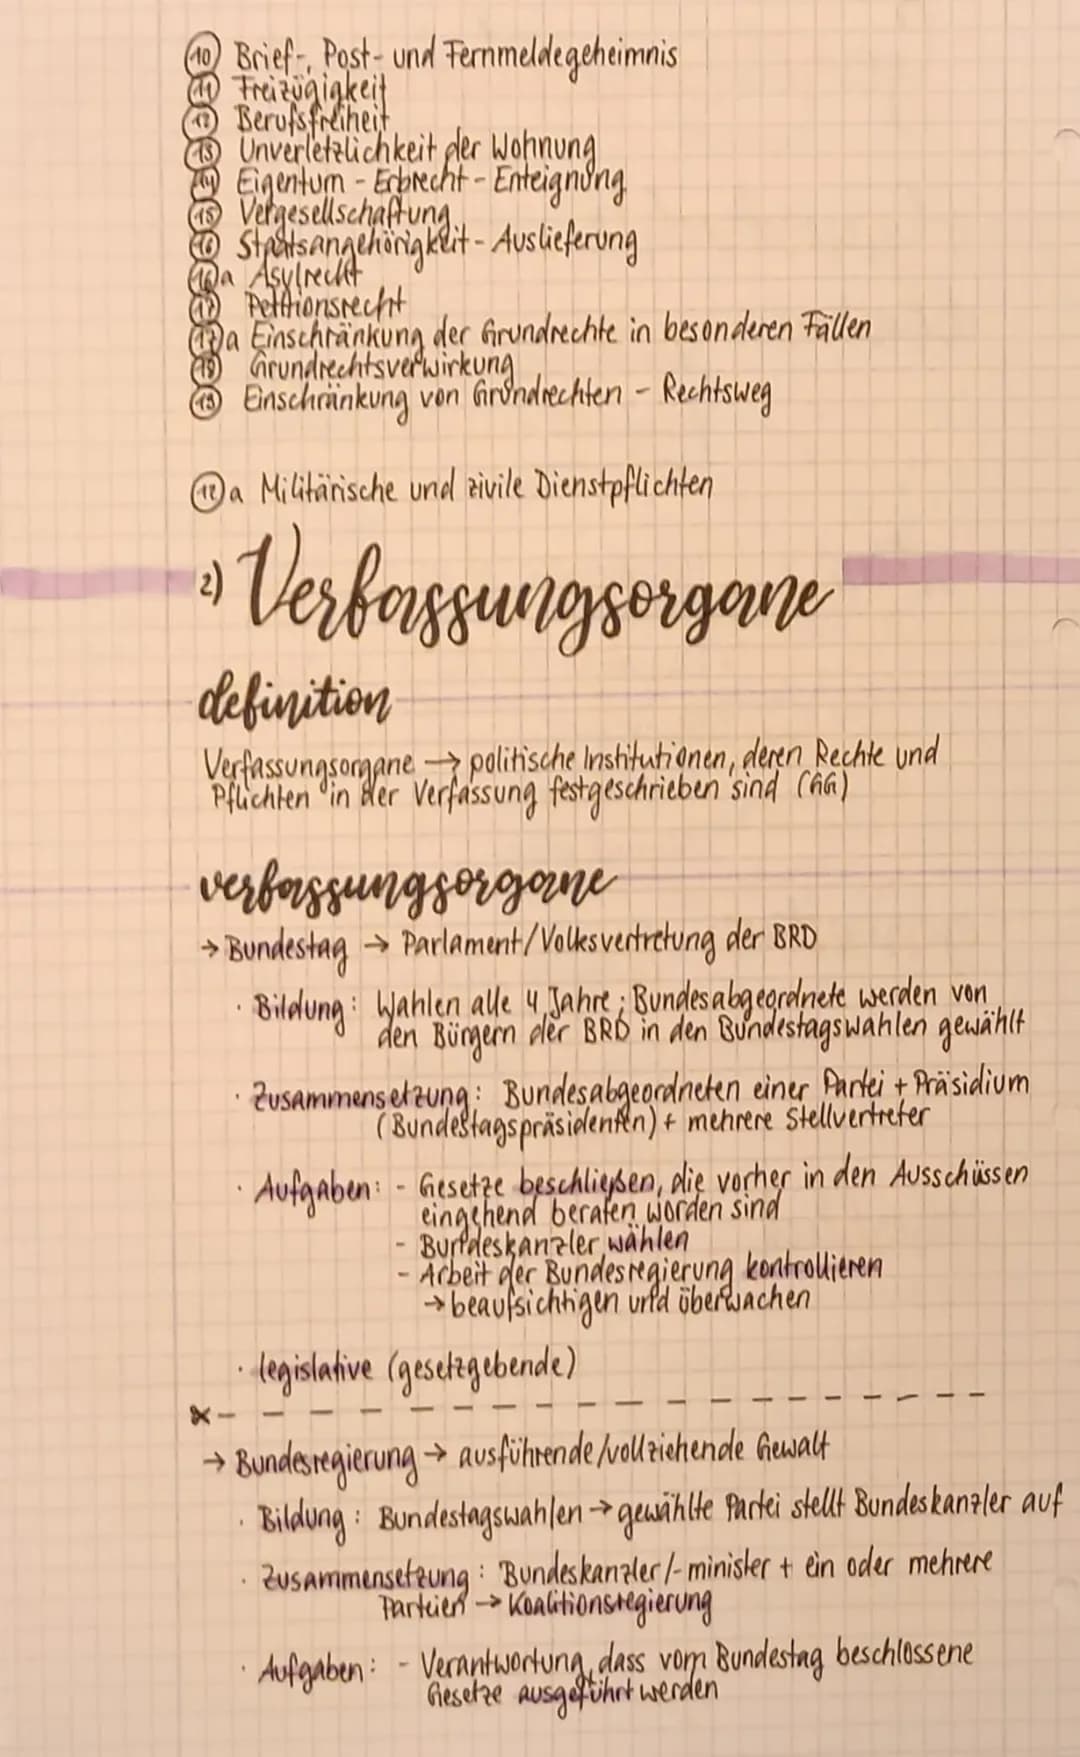 10 Brief-, Post- und Fernmeldegeheimnis
11 Freizügigkeit
12 Berufsfreiheit
13 Unverletzlichkeit der Wohnung
14 Eigentum - Erbrecht - Enteignung
15 Vergesellschaftung
16 Staatsangehörigkeit - Auslieferung
16a Asylrecht
17 Petitionsrecht
17a Einschränkung der Grundrechte in besonderen Fällen
18 Grundrechtsverwirkung
19 Einschränkung von Grundrechten - Rechtsweg
12a Militärische und zivile Dienstpflichten
2) Verfassungsorgane
definition
Verfassungsorgane → politische Institutionen, deren Rechte und
Pflichten in der Verfassung festgeschrieben sind (GG)
verfassungsorgane
→ Bundestag → Parlament/Volksvertretung der BRD
· Bildung: Wahlen alle 4 Jahre; Bundesabgeordnete werden von
den Bürgern der BRD in den Bundestagswahlen gewählt
· Zusammensetzung: Bundesabgeordneten einer Partei + Präsidium
(Bundestagspräsidenten) + mehrere Stellvertreter
· Aufgaben: - Gesetze beschließen, die vorher in den Ausschüssen
eingehend beraten worden sind
- Bundeskanzler wählen
- Arbeit der Bundesregierung kontrollieren
→ beaufsichtigen und überwachen
· legislative (gesetzgebende)
→ Bundesregierung → ausführende/vollziehende Gewalt
· Bildung: Bundestagswahlen → gewählte Partei stellt Bundeskanzler auf
· Zusammensetzung: Bundeskanzler/-minister + ein oder mehrere
Parteien → Koalitionsregierung
· Aufgaben: - Verantwortung, dass vom Bundestag beschlossene
Gesetze ausgeführt werden